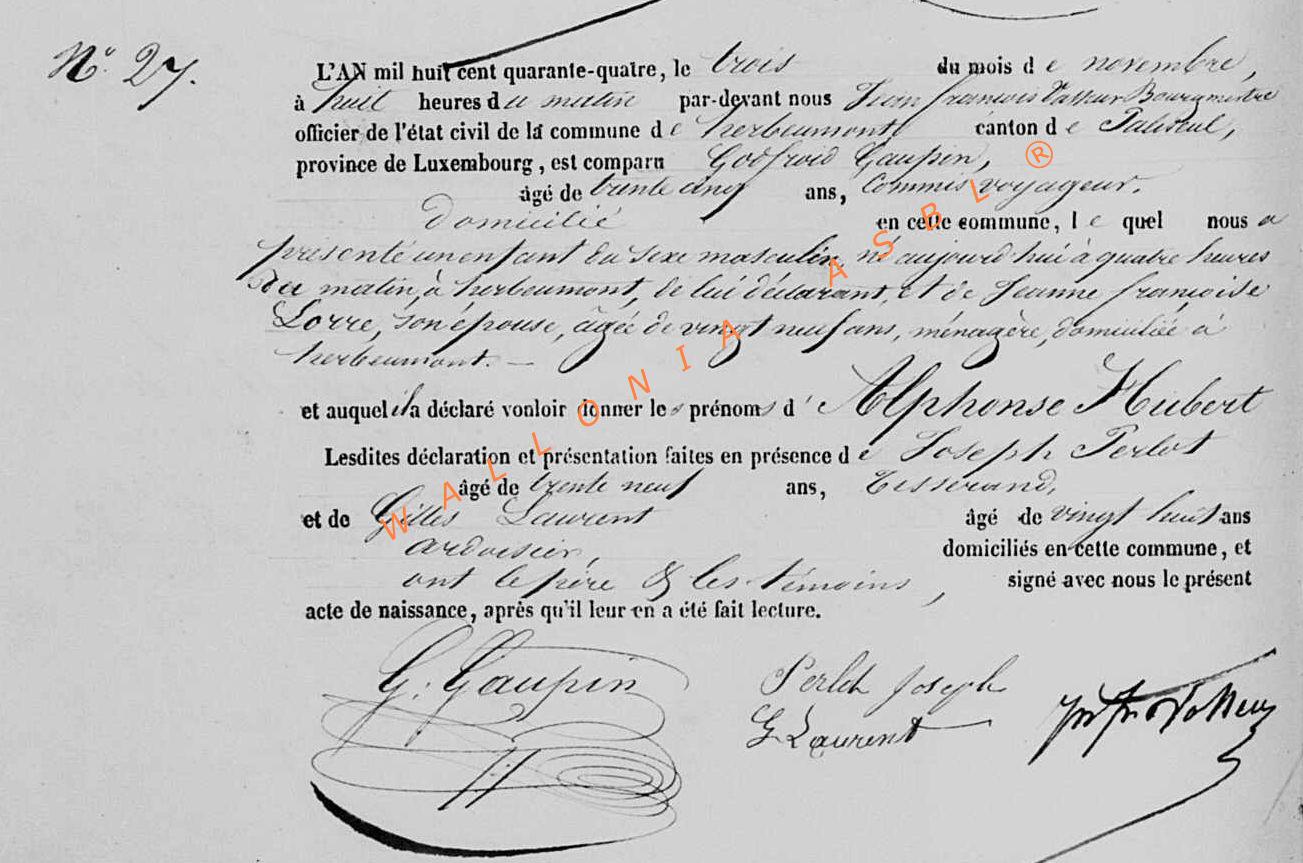 N° 27.
L'AN mil huit cent quarante-quatre, le trois du mois de novembre,
à huit heures du matin par-devant nous Jean françois Vasseur Bourgmestre
officier de l'état civil de la commune de herbeumont, canton de Paliseul,
province de Luxembourg, est comparu Godfroid Gaupin,
âgé de trente cinq ans, Commis voyageur.
domicilié en cette commune, le quel nous a
présenté un enfant du sexe masculin, né aujourd'hui à quatre heures
du matin, à herbeumont, de lui déclarant, et de Jeanne françoise
Lorre, son épouse, âgée de vingt neuf ans, ménagère, domiciliée à
herbeumont. —
et auquel il a déclaré vouloir donner les prénoms d'e Alphonse Hubert
Lesdites déclaration et présentation faites en présence de Joseph Perlot
âgé de trente neuf ans, Tisserand,
et de Gilles Laurent âgé de vingt huit ans
ardoisier, domiciliés en cette commune, et
ont le père & les témoins, signé avec nous le présent
acte de naissance, après qu'il leur en a été fait lecture.
G. Gaupin
Perlot Joseph
G Laurent
WALLONIA ASBL ®